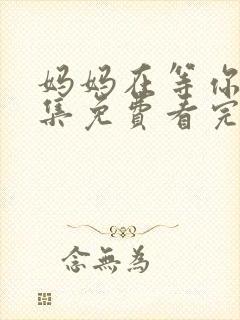 妈妈在等你
集免费看完
念無為